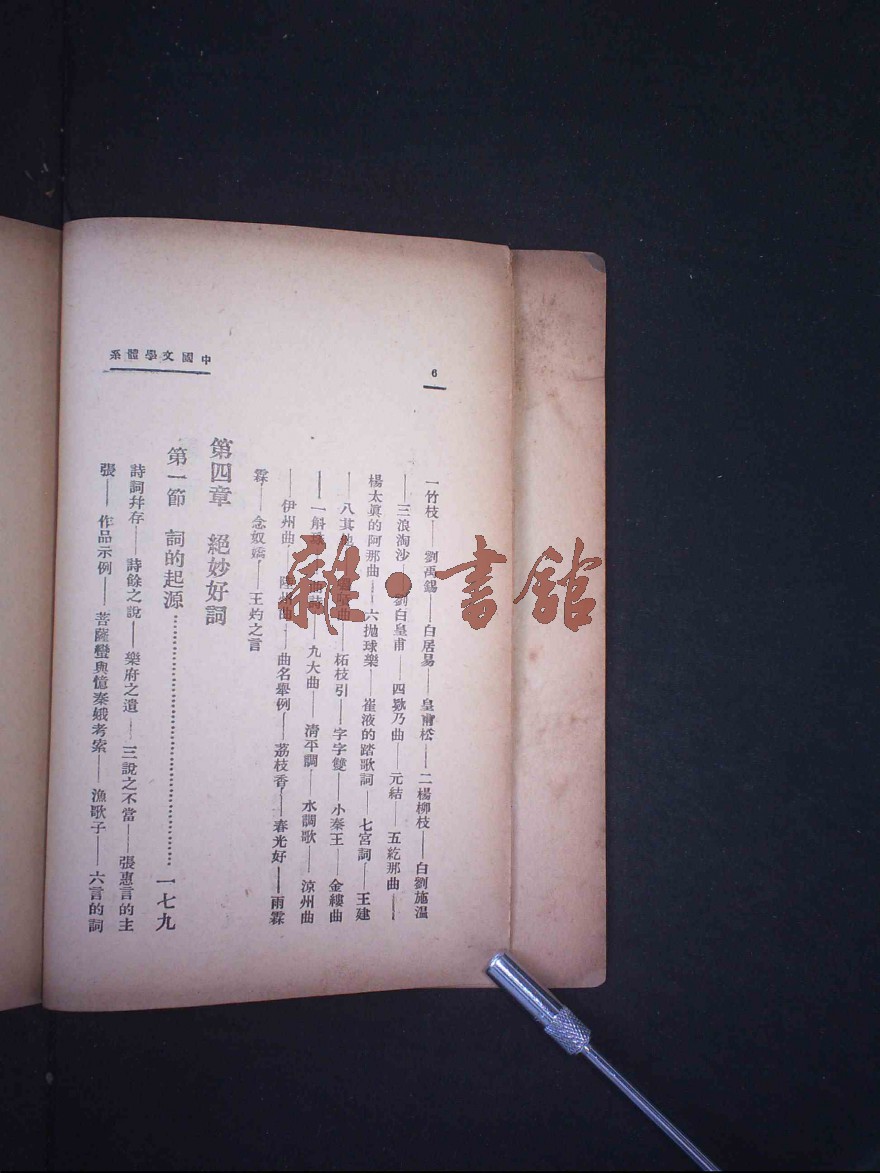 中國文學體系
6
一竹枝——劉禹錫——白居易——皇甫松——二楊柳枝——白劉施溫
——三浪淘沙——劉白皇甫——四欸乃曲——元結——五紇那曲——
楊太眞的阿那曲——六拋球樂——崔液的踏歌詞——七宮詞——王建
——八其他——曲——柘枝引——字字雙——小秦王——金縷曲
——一斛珠——曲詩——九大曲——淸平調——水調歌——涼州曲
——伊州曲——陸州曲——曲名舉例——荔枝香——春光好——雨霖
霖——念奴嬌——王灼之言
第四章 絕妙好詞
第一節 詞的起源……一七九
詩詞幷存——詩餘之說——樂府之遺——三說之不當——張惠言的主
張——作品示例——菩薩蠻與憶秦娥考索——漁歌子——六言的詞
雜·書館